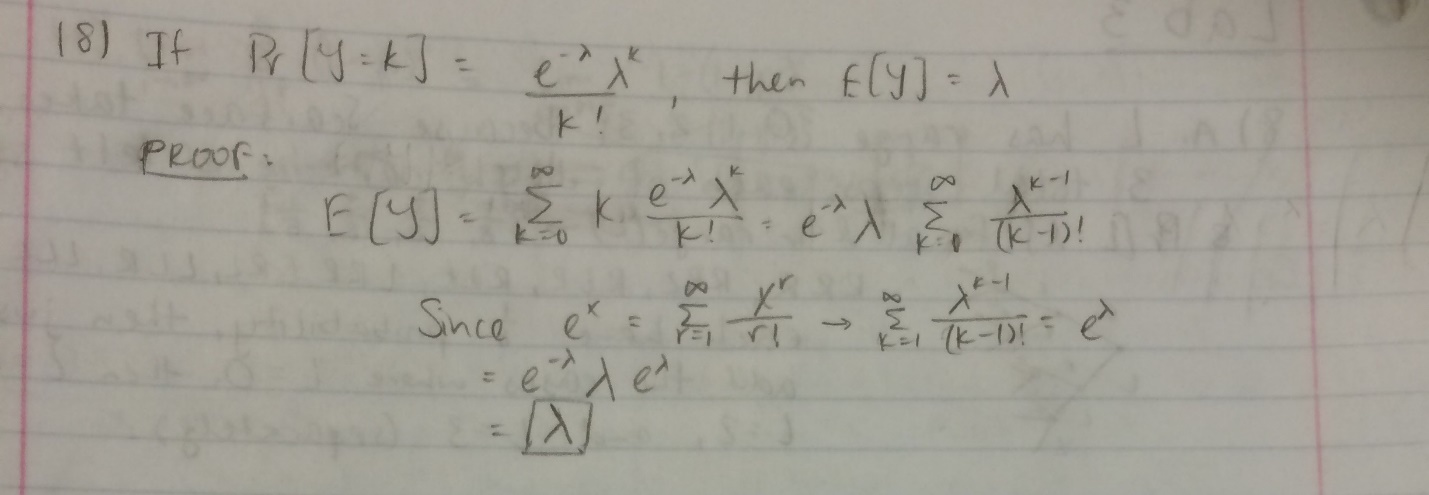 18) If Pr[Y=k] = e^{-λ} λ^k / k! , then E[Y] = λ
PROOF:
E[Y] = ∑_{k=0}^{∞} k e^{-λ} λ^k / k! = e^{-λ} λ ∑_{k=0}^{∞} λ^{k-1} / (k-1)!
Since e^x = ∑_{r=1}^{∞} x^r / r! → ∑_{k=1}^{∞} λ^{k-1} / (k-1)! = e^λ
= e^{-λ} λ e^λ
= λ